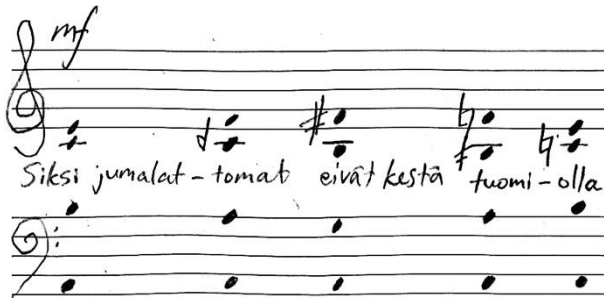 mf
Siksi jumalat-tomat eivät kestä tuomi-olla